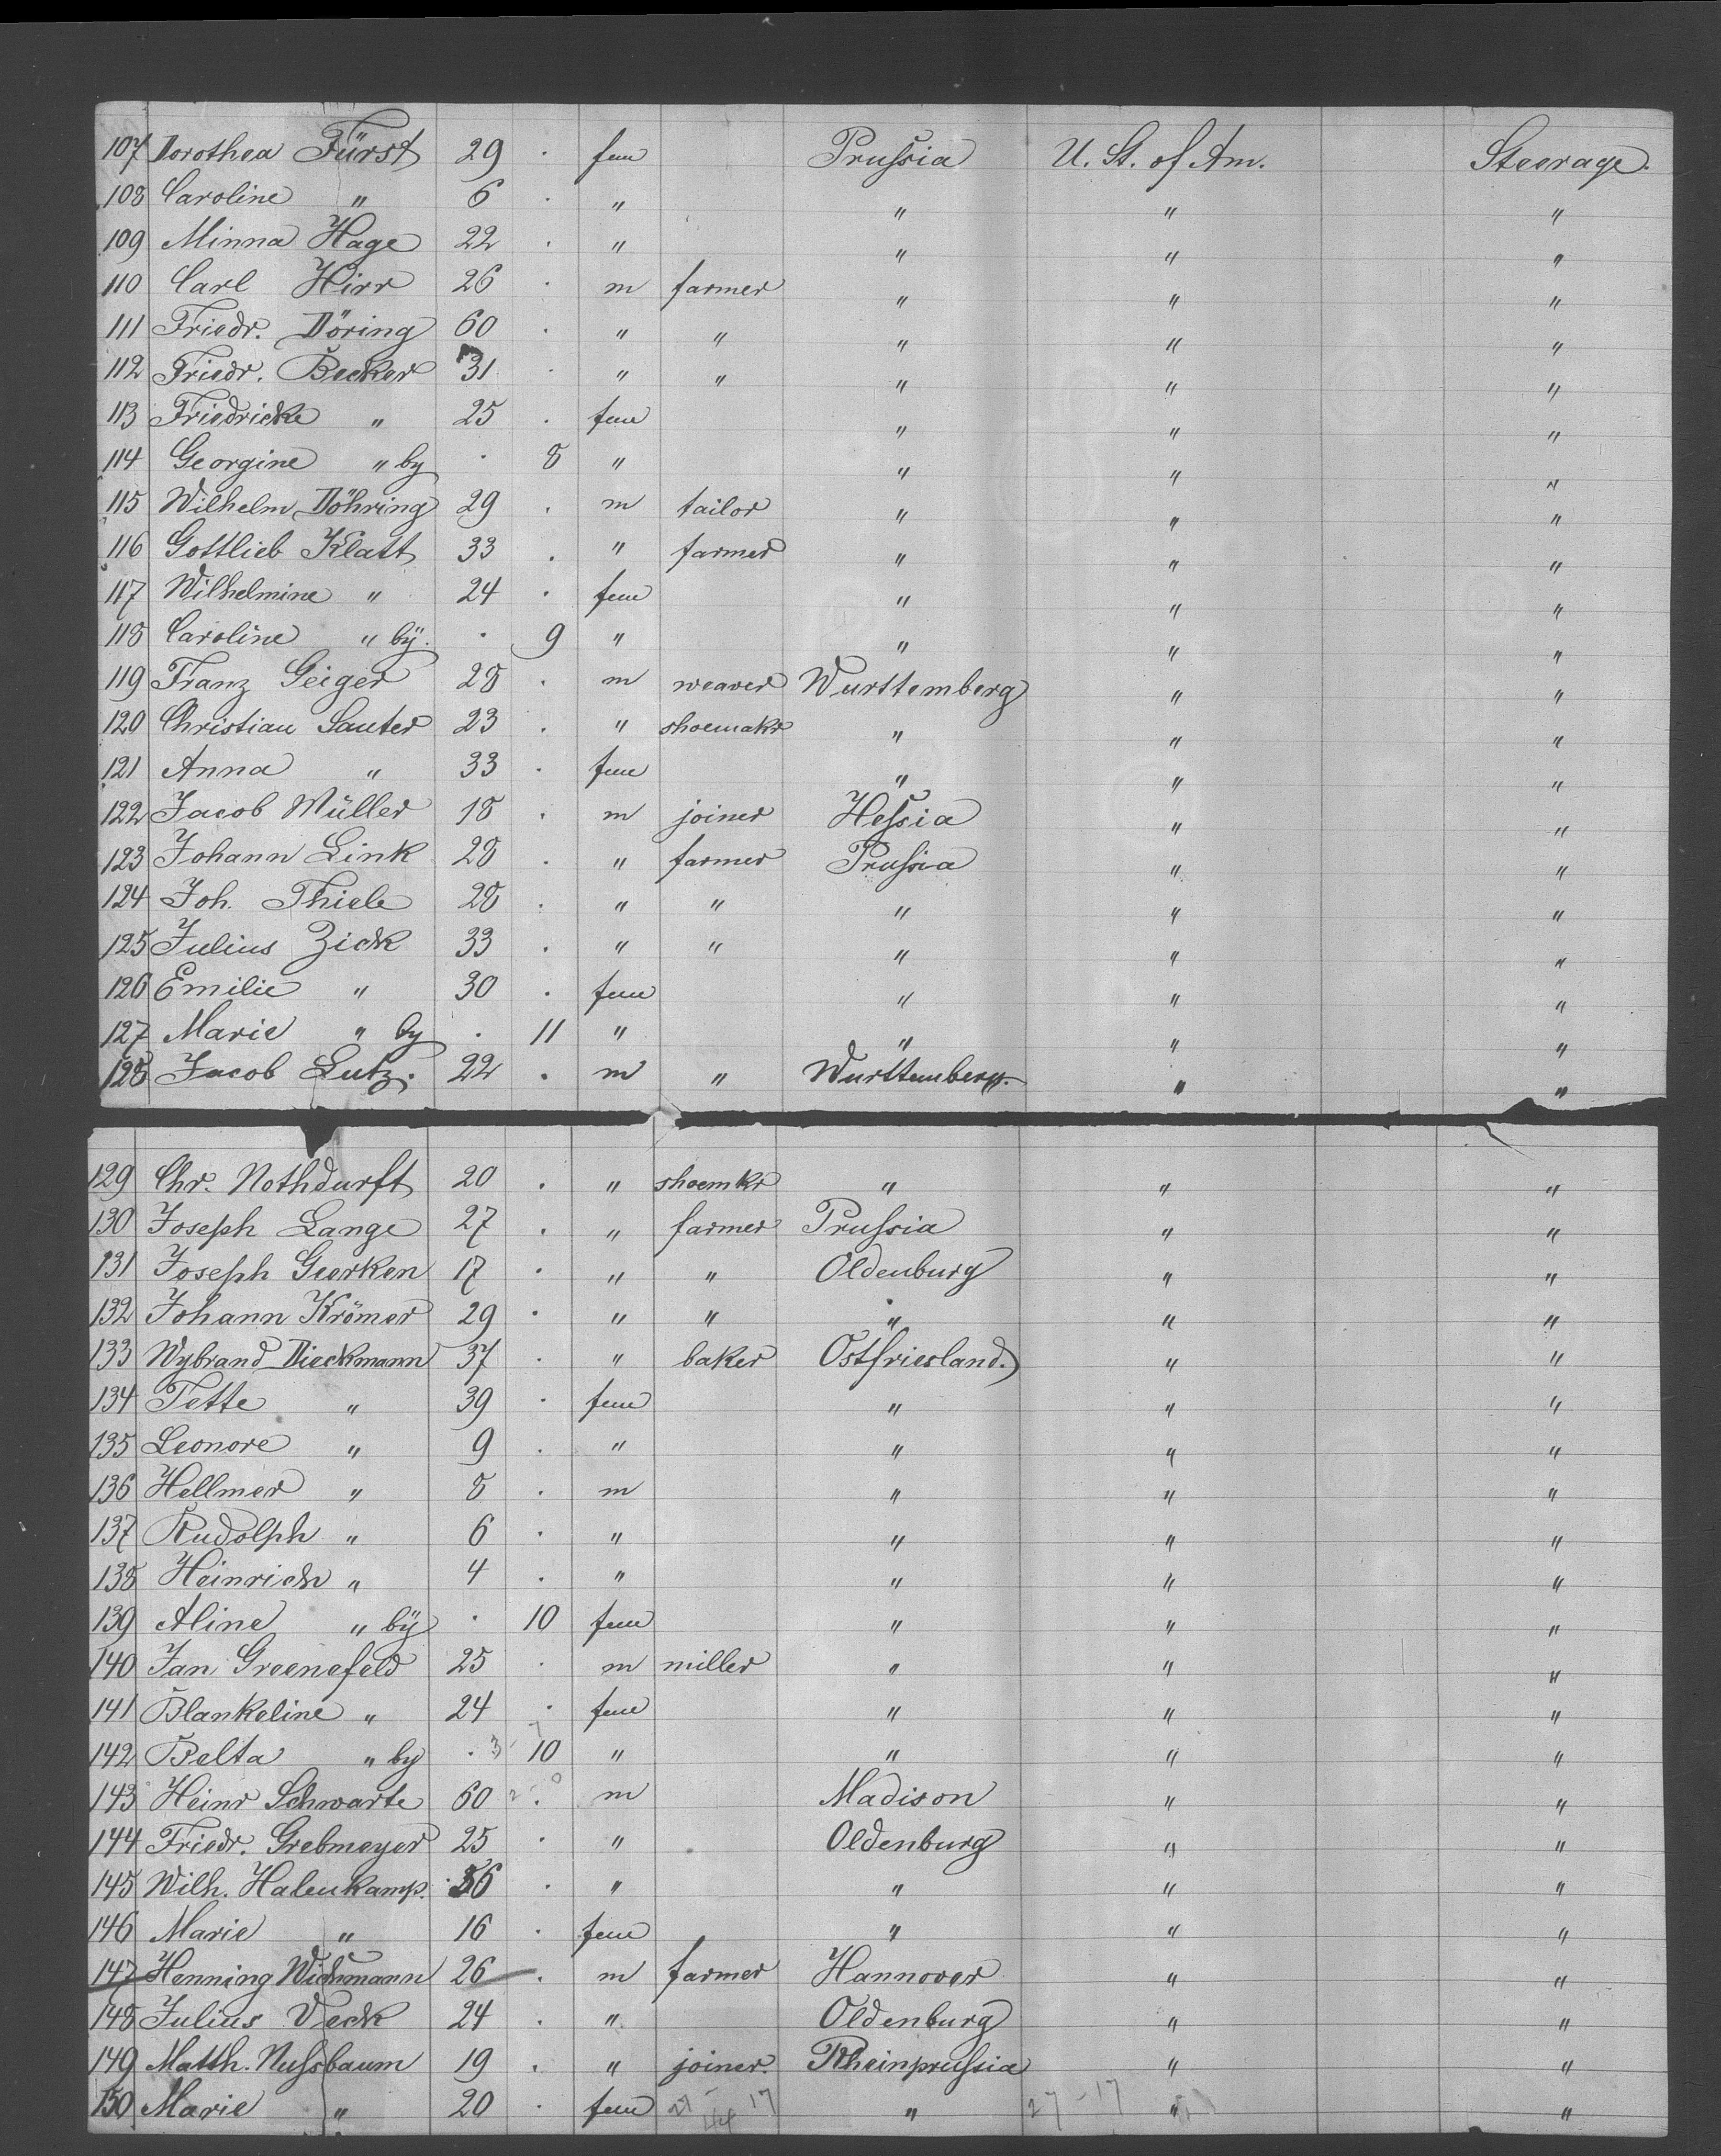 107 Dorothea Fürst 29 . fem Prussia U. St. of Am. Steerage.
108 Caroline " 6 . " " " "
109 Minna Hage 22 . " " " "
110 Carl Hirr 26 . m farmer " " "
111 Friedr. Döring 60 . " " " " "
112 Friedr. Becker 31 . " " " " "
113 Friedricke " 25 . fem " " "
114 Georgine " by . 8 " " " "
115 Wilhelm Döhring 29 . m tailor " " "
116 Gottlieb Klatt 33 . " farmer " " "
117 Wilhelmine " 24 . fem " " "
118 Caroline " by . 9 " " " "
119 Franz Geiger 28 . m weaver Wurttemberg " "
120 Christian Sauter 23 . " shoemakr " " "
121 Anna " 33 . fem " " "
122 Jacob Müller 18 . m joiner Hessia " "
123 Johann Link 28 . " farmer Prussia " "
124 Joh. Thiele 28 . " " " " "
125 Julius Zick 33 . " " " " "
126 Emilie " 30 . fem " " "
127 Marie " by . 11 " " " "
128 Jacob Lutz. 22 . m " Wurttemberg. " "
129 Chr. Nothdurft 20 . " shoemkr " " "
130 Joseph Lange 27 . " farmer Prussia " "
131 Joseph Gerken 17 . " " Oldenburg " "
132 Johann Krömer 29 . " " " " "
133 Wybrand Dieckmann 37 . " baker Ostfriesland. " "
134 Tette " 39 . fem " " "
135 Leonore " 9 . " " " "
136 Hellmer " 8 . m " " "
137 Rudolph " 6 . " " " "
138 Heinrich " 4 . " " " "
139 Aline " by . 10 fem " " "
140 Jan Groenefeld 25 . m miller " " "
141 Blankeline " 24 . fem " " "
142 Belta " by . 10 " " " "
143 Heinr Schwarte 60 . m Madison " "
144 Friedr. Grebmeyer 25 . " Oldenburg " "
145 Wilh. Halenkamp. 56 . " " " "
146 Marie " 16 . fem " " "
147 Henning Wichmann 26 . m farmer Hannover " "
148 Julius Veck 24 . " Oldenburg " "
149 Matth. Nussbaum 19 . " joiner. Rheinprussia " "
150 Marie " 20 . fem " 27 - 17 " "